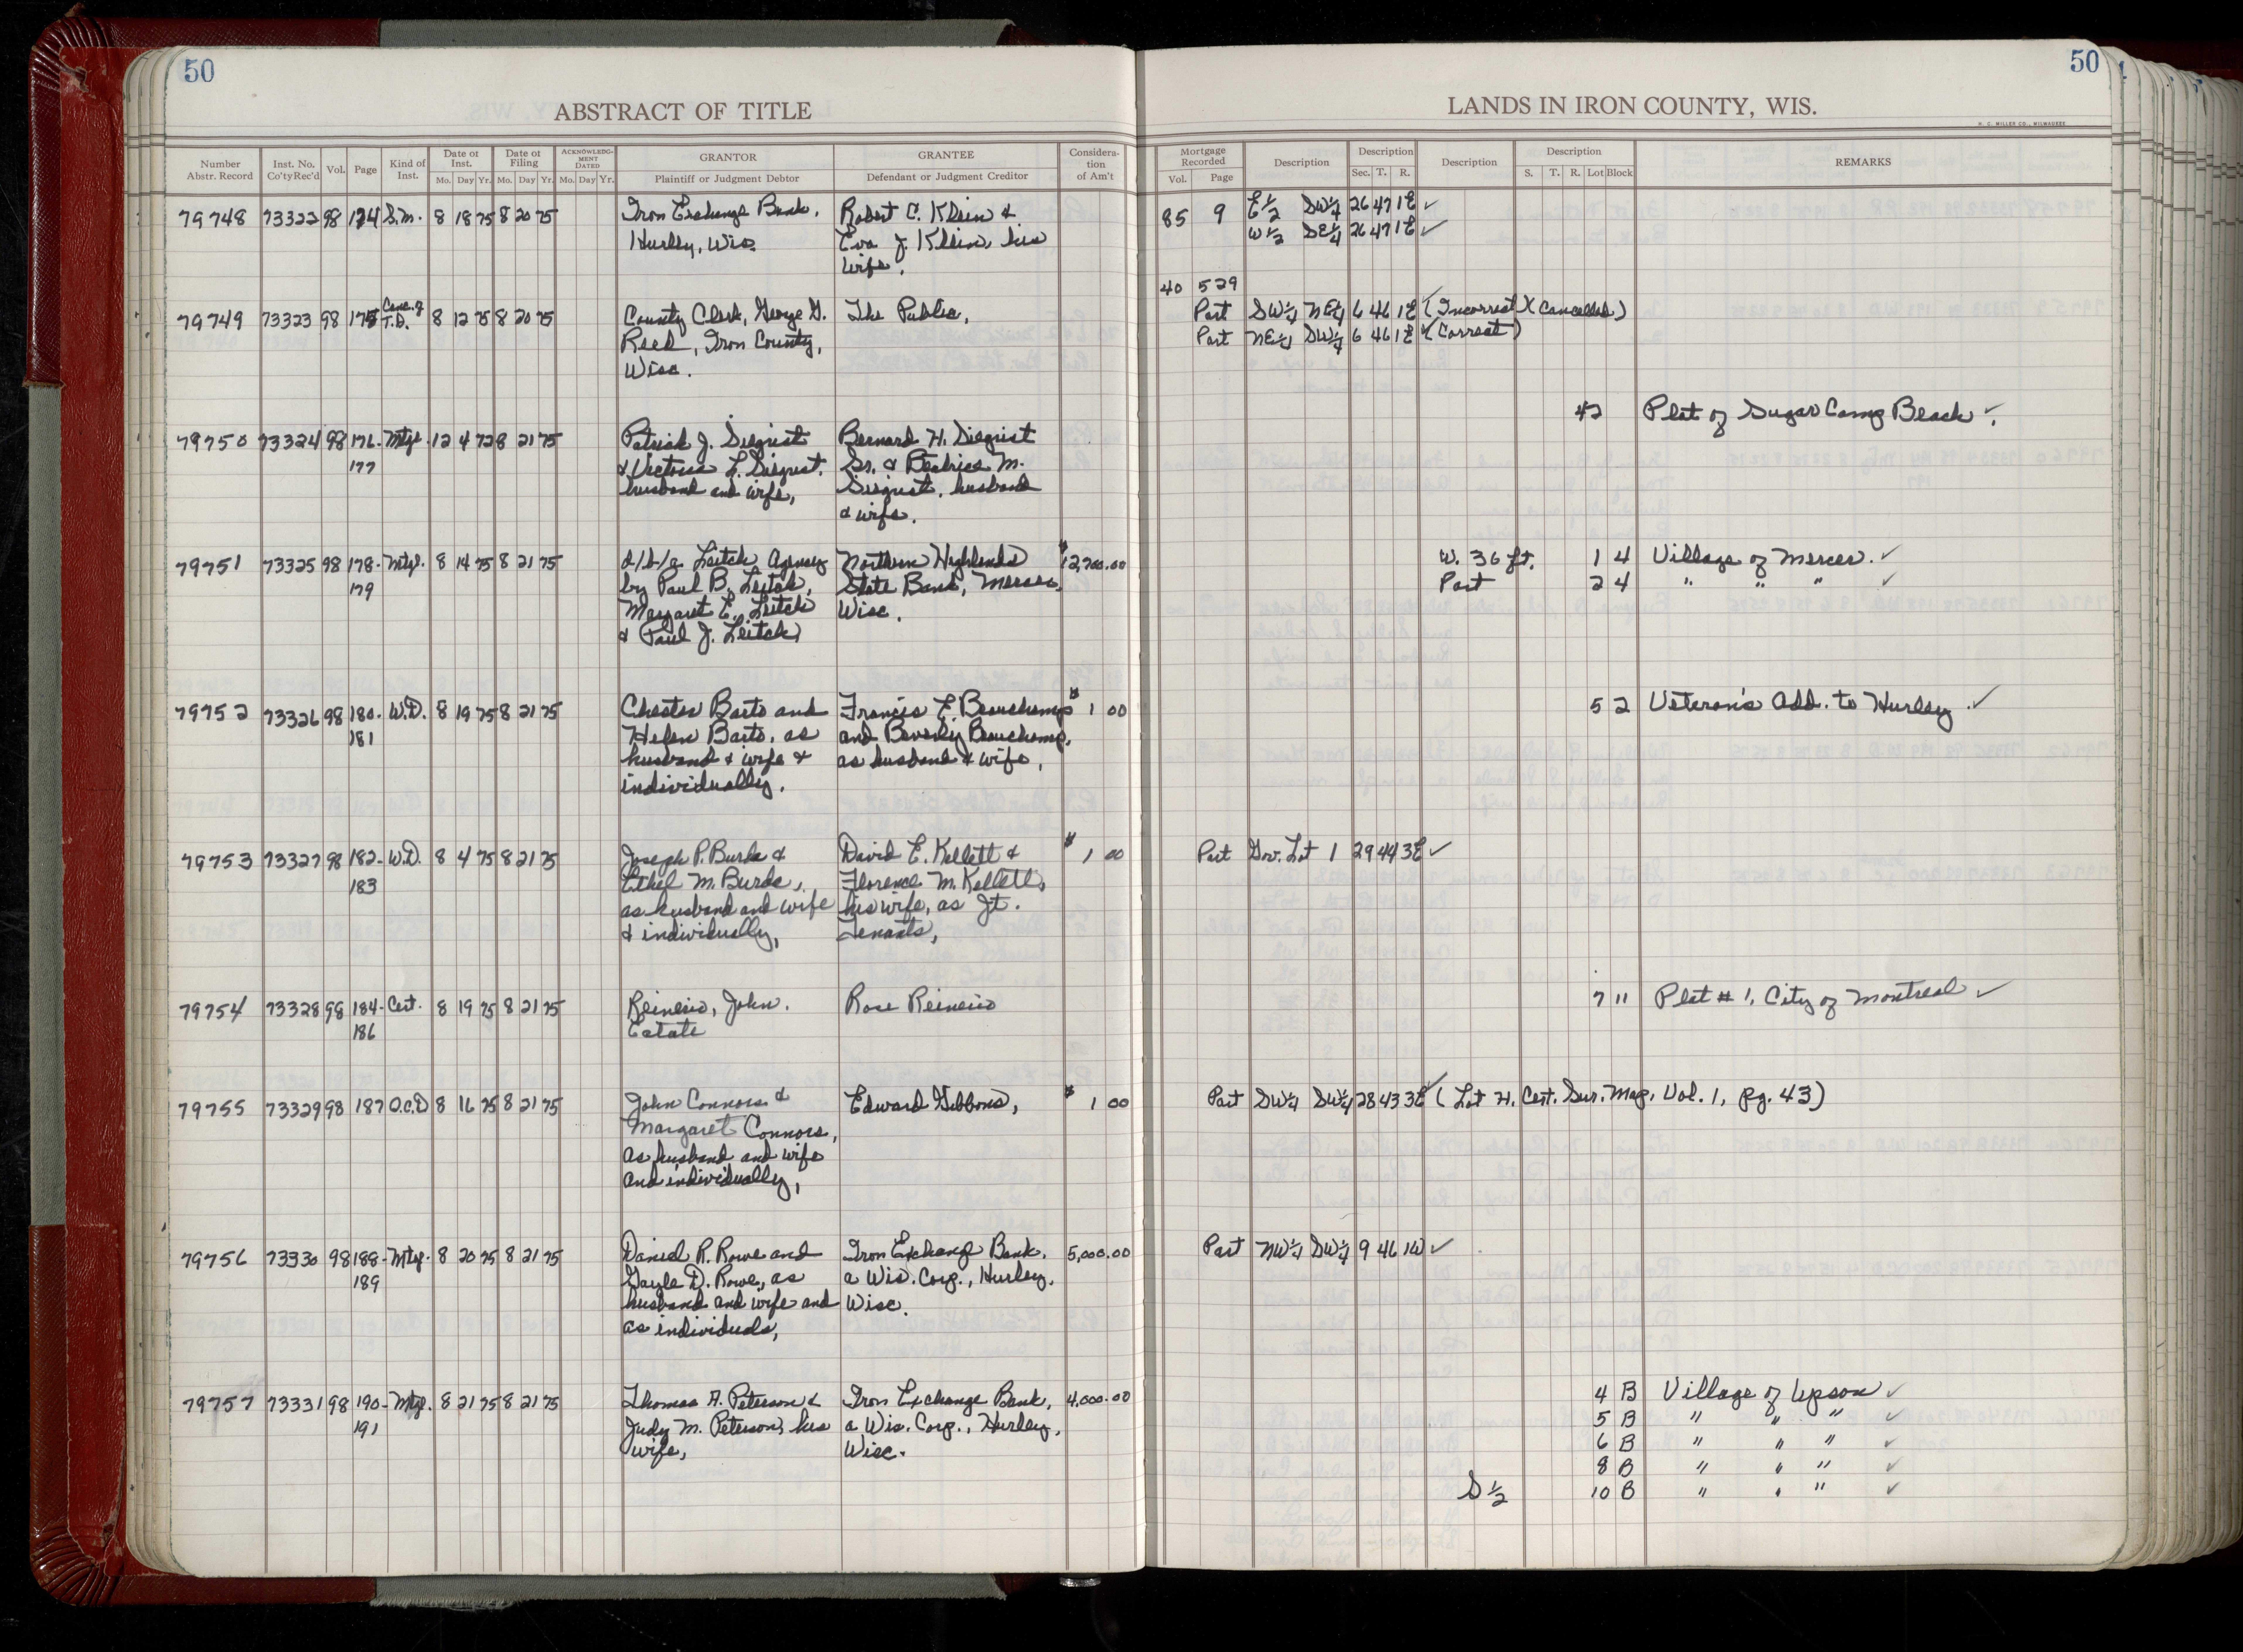 50
ABSTRACT OF TITLE
Number Abstr. Record Inst. No. Co'ty Rec'd Vol. Page Kind of Inst. Date of Inst. Mo. Day Yr. Date of Filing Mo. Day Yr. ACKNOWLEDGMENT DATED Mo. Day Yr. GRANTOR Plaintiff or Judgment Debtor GRANTEE Defendant or Judgment Creditor Consideration of Am't
79748 73322 98 174 S.M. 8 18 75 8 20 75 Iron Exchange Bank, Robert C. Klein &
Hurley, Wis. Eva J. Klein, his
wife.
79749 73323 98 175 Canc. of T.D. 8 12 75 8 20 75 County Clerk, George G. The Public,
Reed, Iron County,
Wisc.
79750 73324 98 176- Mtg. 12 4 72 8 21 75 Patrick J. Siegrist Bernard H. Siegrist
177 & Victoria L. Siegrist, Sr. & Beatrice M.
husband and wife, Siegrist, husband
& wife.
79751 73325 98 178- Mtg. 8 14 75 8 21 75 d/b/a Leitch Agency Northern Highlands $12,700.00
179 by Paul B. Leitch, State Bank, Mercer,
Margaret E. Leitch Wisc.
& Paul J. Leitch
79752 73326 98 180- W.D. 8 19 75 8 21 75 Chester Barto and Francis E. Beauchamp $1 00
181 Helen Barto, as and Beverly Beauchamp,
husband & wife & as husband & wife,
individually.
79753 73327 98 182- W.D. 8 4 75 8 21 75 Joseph P. Burda & David E. Kellett & $1 00
183 Ethel M. Burda, Florence M. Kellett,
as husband and wife his wife, as Jt.
& individually, Tenants,
79754 73328 98 184- Cert. 8 19 75 8 21 75 Reinerio, John. Rose Reinerio
186 Estate
79755 73329 98 187 Q.C.D 8 16 75 8 21 75 John Connors & Edward Gibbons, $1 00
Margaret Connors,
as husband and wife
and individually,
79756 73330 98 188- Mtg. 8 20 75 8 21 75 Daniel R. Rowe and Iron Exchange Bank, 5,000.00
189 Gayle D. Rowe, as a Wis. Corp., Hurley,
husband and wife and Wisc.
as individuals,
79757 73331 98 190- Mtg. 8 21 75 8 21 75 Thomas A. Peterson & Iron Exchange Bank, 4,000.00
191 Judy M. Peterson, his a Wis. Corp., Hurley,
wife, Wisc.
50
LANDS IN IRON COUNTY, WIS.
H. C. MILLER CO., MILWAUKEE
Mortgage Recorded Vol. Page Description Description Sec. T. R. Description Description S. T. R. Lot Block REMARKS
85 9 E½ SW¼ 26 47 1E ✓
W½ SE¼ 26 47 1E ✓
40 529
Part SW¼ NE¼ 6 46 1E ✓ (Incorrect) (Cancelled)
Part NE¼ SW¼ 6 46 1E ✓ (Correct)
42 Plat of Sugar Camp Beach ✓
W. 36 ft. 1 4 Village of Mercer. ✓
Part 2 4 " " " ✓
5 2 Veteran's Add. to Hurley ✓
Part Gov. Lot 1 29 44 3E ✓
7 11 Plat # 1, City of Montreal ✓
Part SW¼ SW¼ 28 43 3E ✓ (Lot H. Cert. Sur. Map, Vol. 1, pg. 43)
Part NW¼ SW¼ 9 46 1W ✓
4 B Village of Upson ✓
5 B " " " ✓
6 B " " " ✓
8 B " " " ✓
S½ 10 B " " " ✓